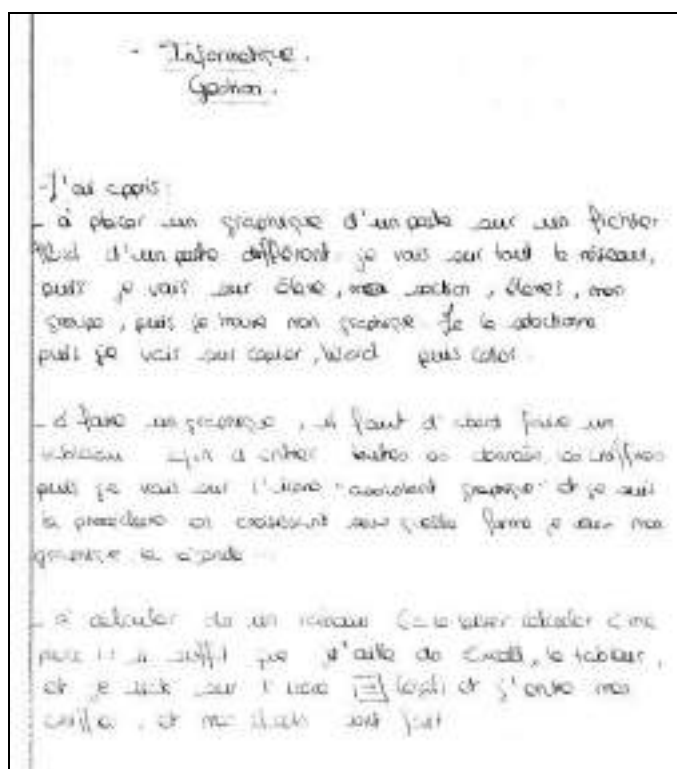 - Informatique.
Gestion.
-J'ai appris:
- à placer un graphique d'un poste sur un fichier
d'un poste différent je vais sur tout le réseau,
puis je vais sur élève, ma section, élève1, mon
groupe, puis je trouve mon graphique. Je le sélectionne
puis je vais sur copier, Word puis coller.
- à faire un graphique, il faut d'abord faire un
tableau afin d'entrer toutes les données, les chiffres
puis je vais sur l'icône "assistant graphique" et je suis
la procédure en choisissant sous quelle forme je veux mon
graphique
- à calculer un
il suffit que j'aille Excel, le tableur,
et je click sur l'icône (égal) et j'entre mes
chiffres, et mes calculs sont fait